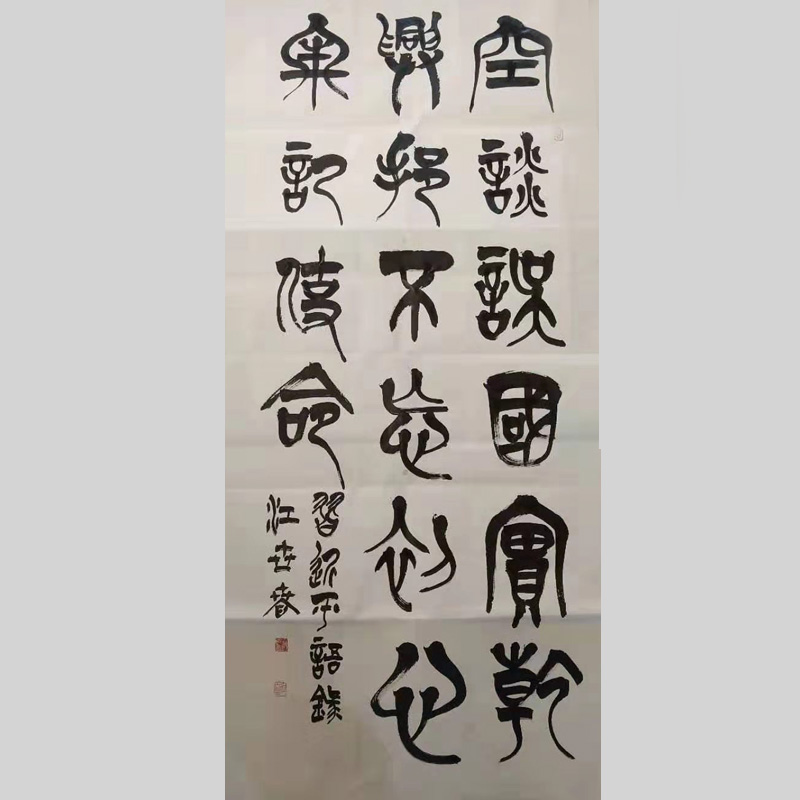 空談誤國實乾
興邦不忘初心
牢記使命
習近平語錄
江世春